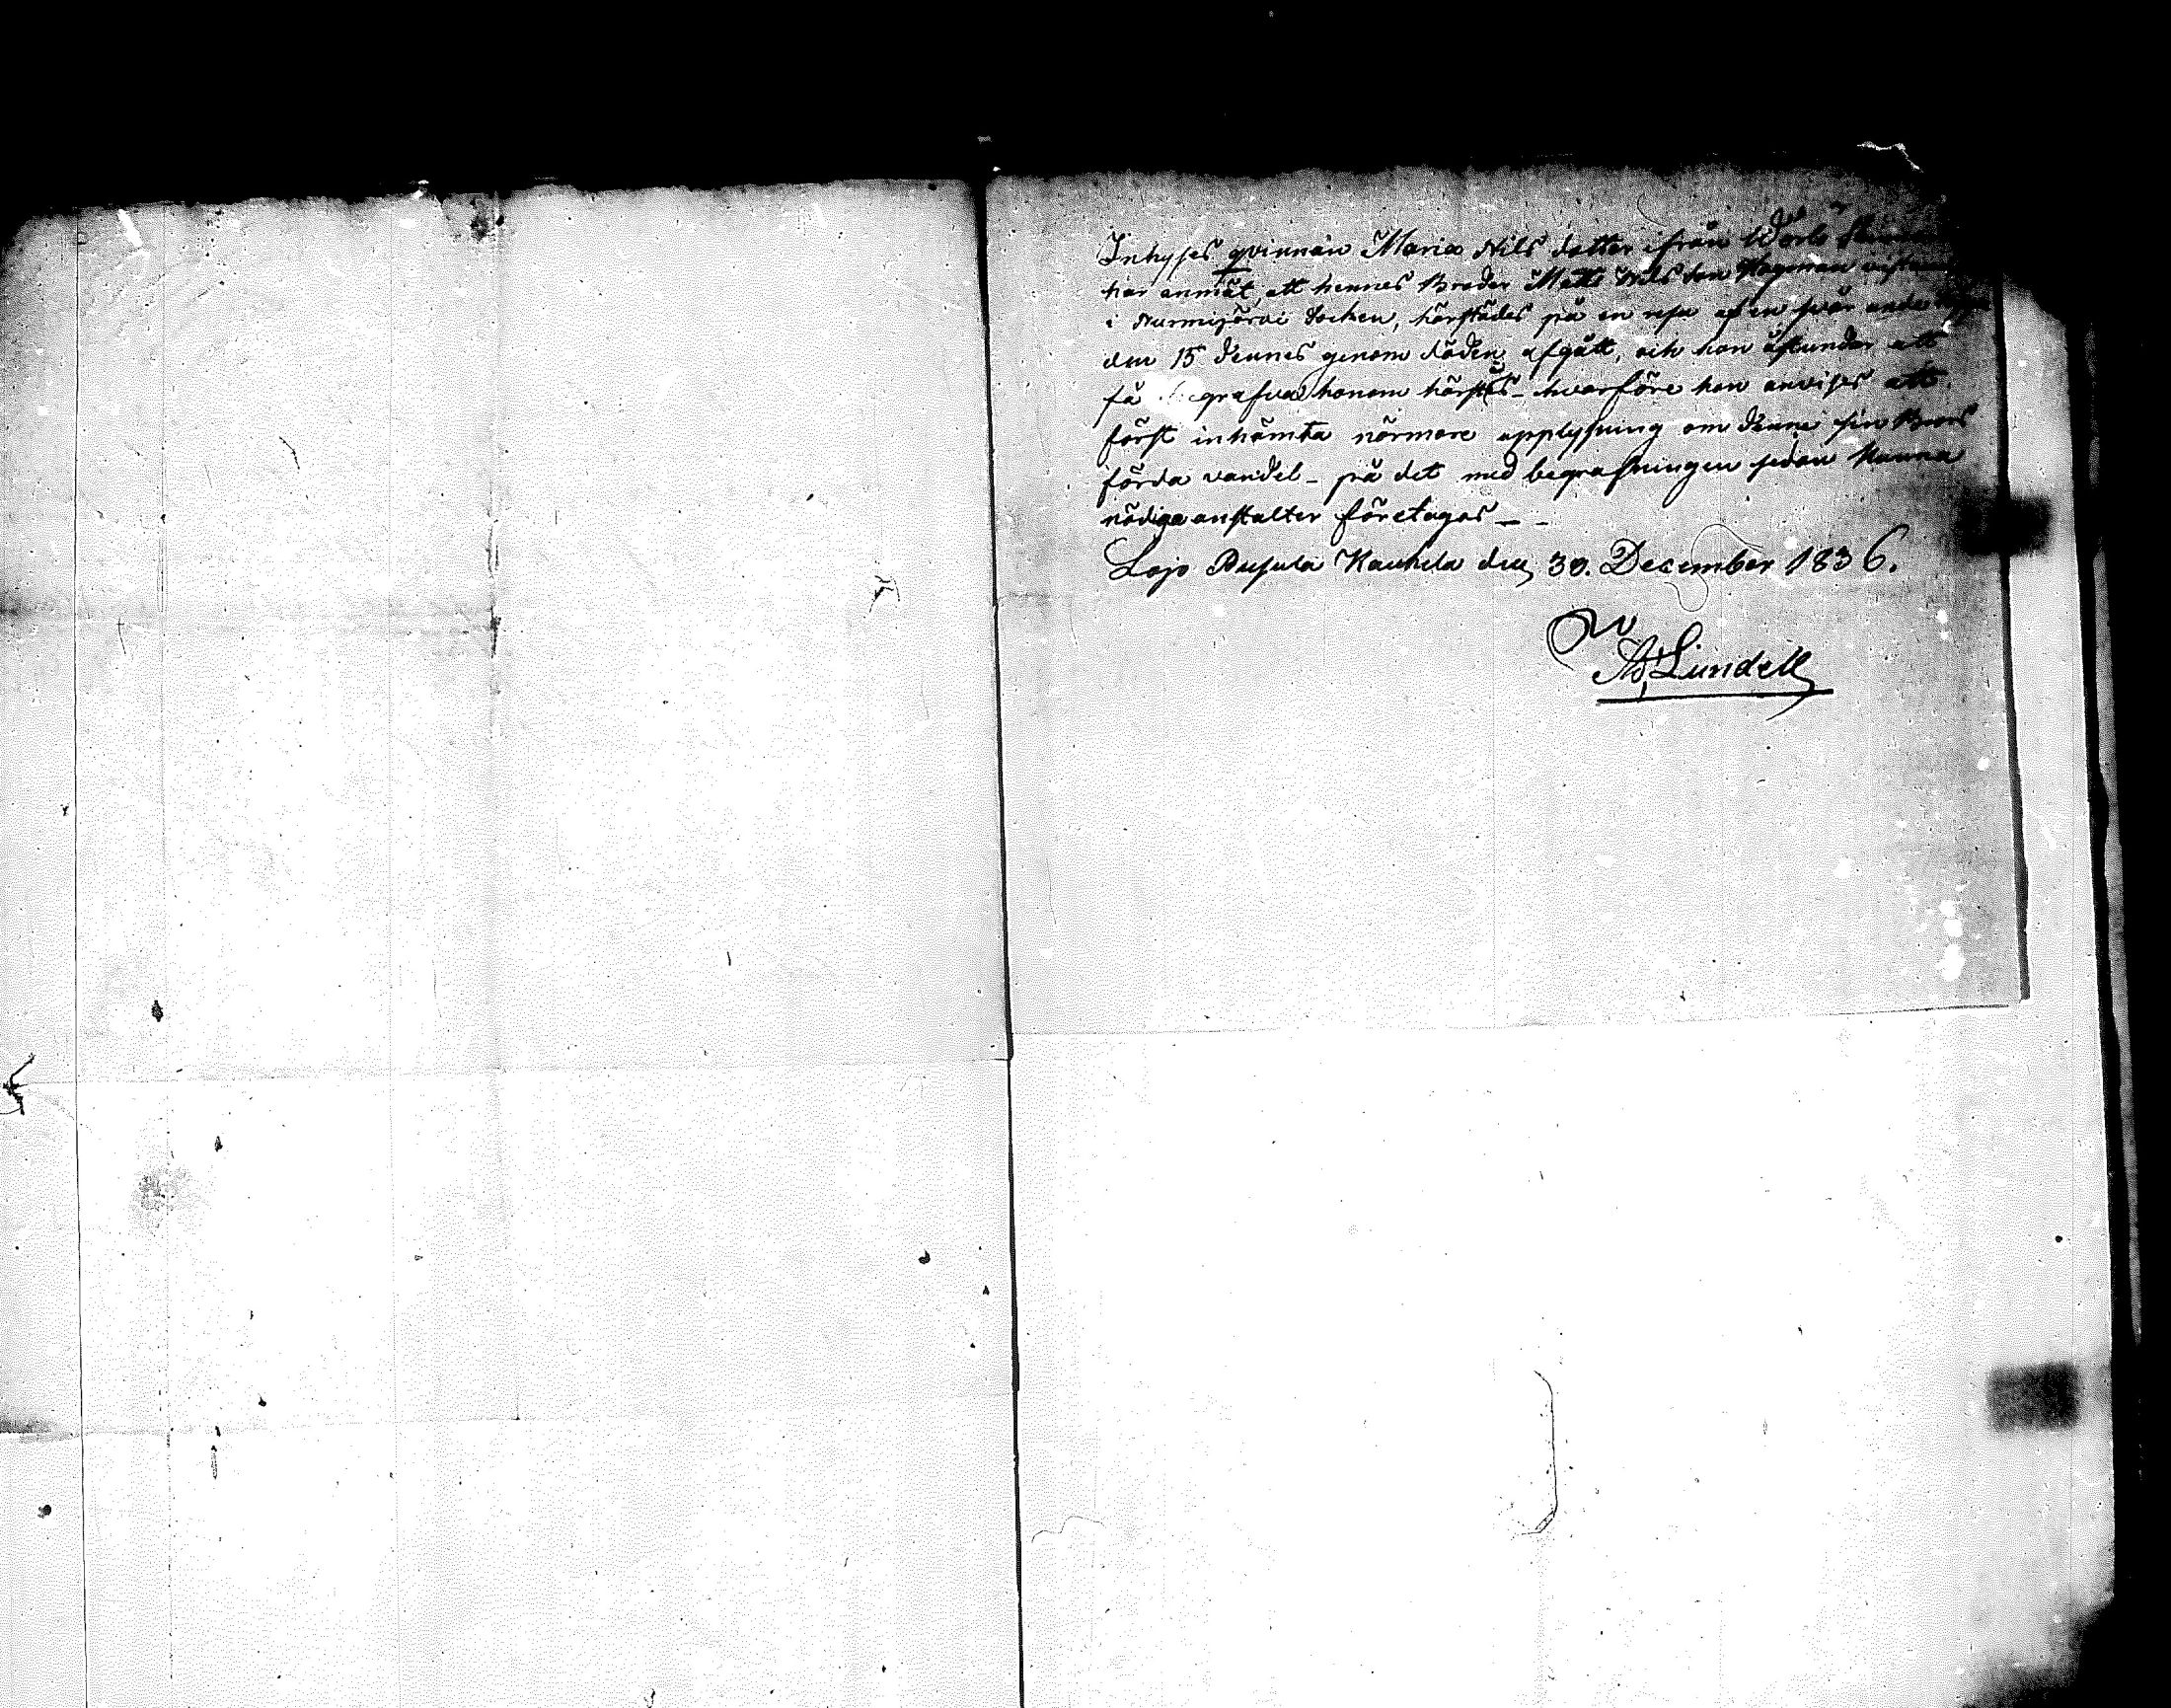 Inhyses qvinnan Maria Nils dotter ifrån
har anmält, att hennes Broder Matts Nils son Hagman
i Nurmijärvi Socken, härstädes på en resa af en svår
den 15 dennes genom döden afgått, och hon åstundar att
få begrafva honom härstes - hvarföre hon anvises att
först inhämta närmare upplysning om denne sin Brors
förda vandel - på det med begrafningen sedan kunna
nödiga anstalter företagas - -
Lojo Pusula Kauhela den 30. December 1836.
Lundell